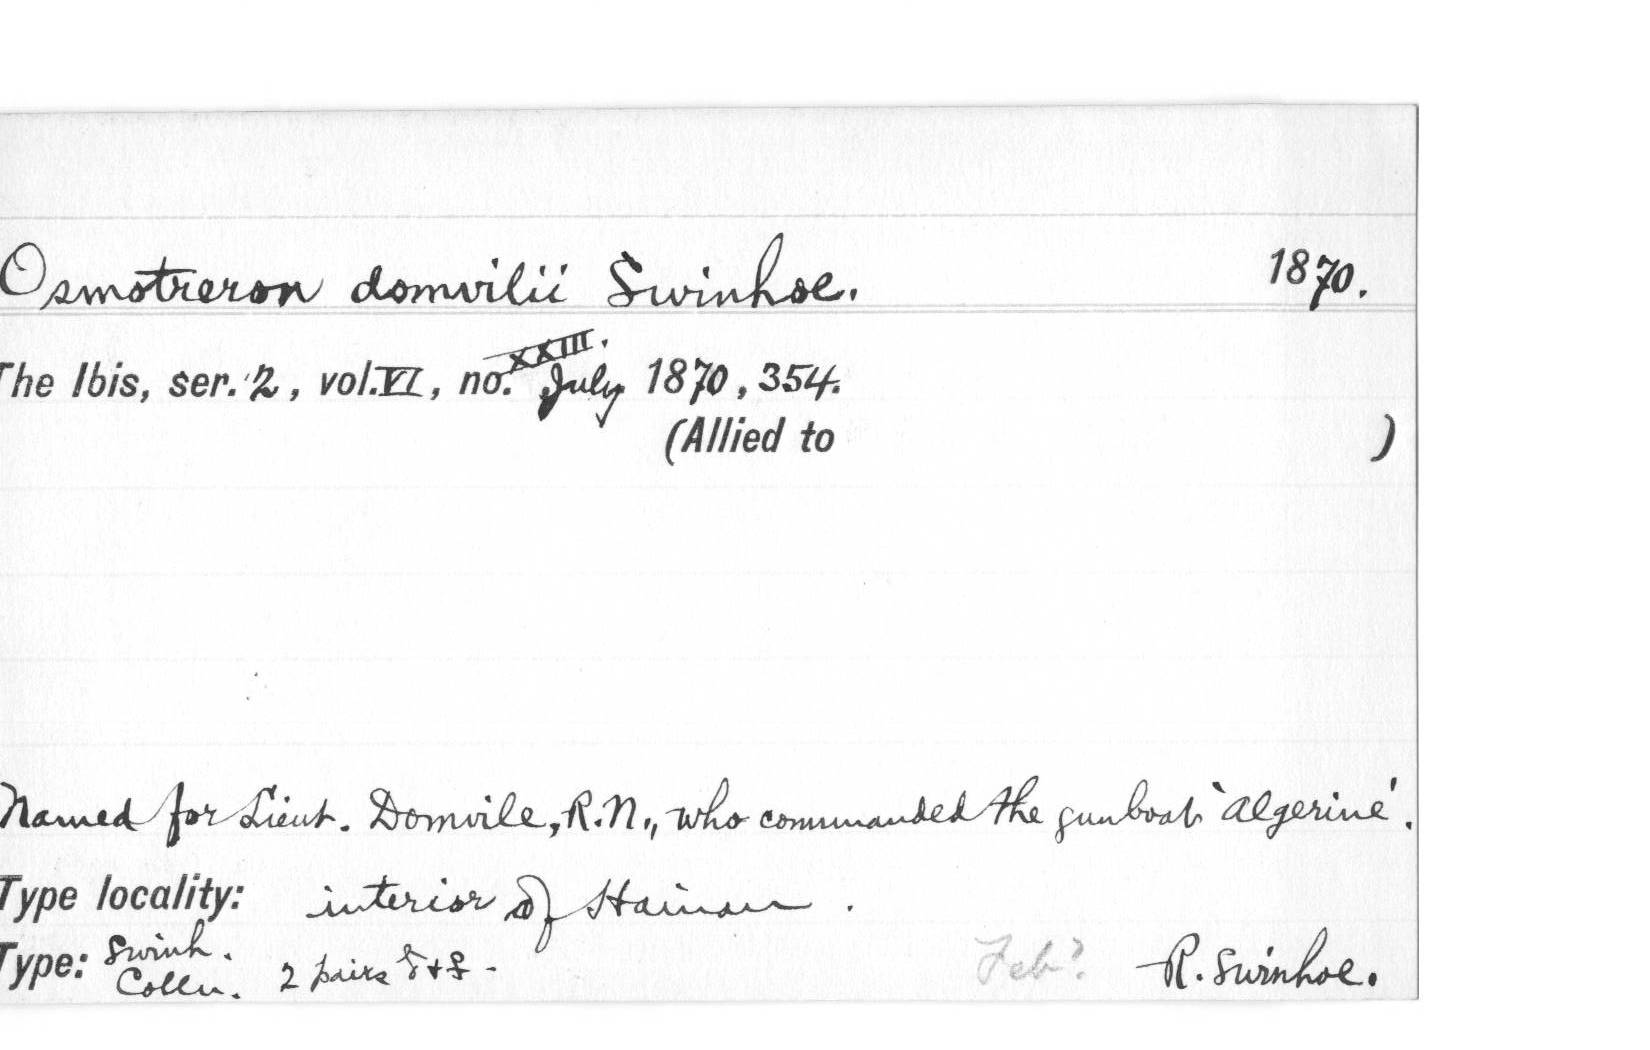 Osmotreron domvilii Swinhoe. 1870.
The Ibis, ser. 2, vol. VI, no. XXIII. July 1870, 354.
(Allied to )
Named for Lieut. Domvile, R.N., who commanded the gunboat 'Algerine'.
Type locality: interior of Hainan.
Type: Swinh. Colln. 2 pairs ♂ + ♀ - Feb? R. Swinhoe.